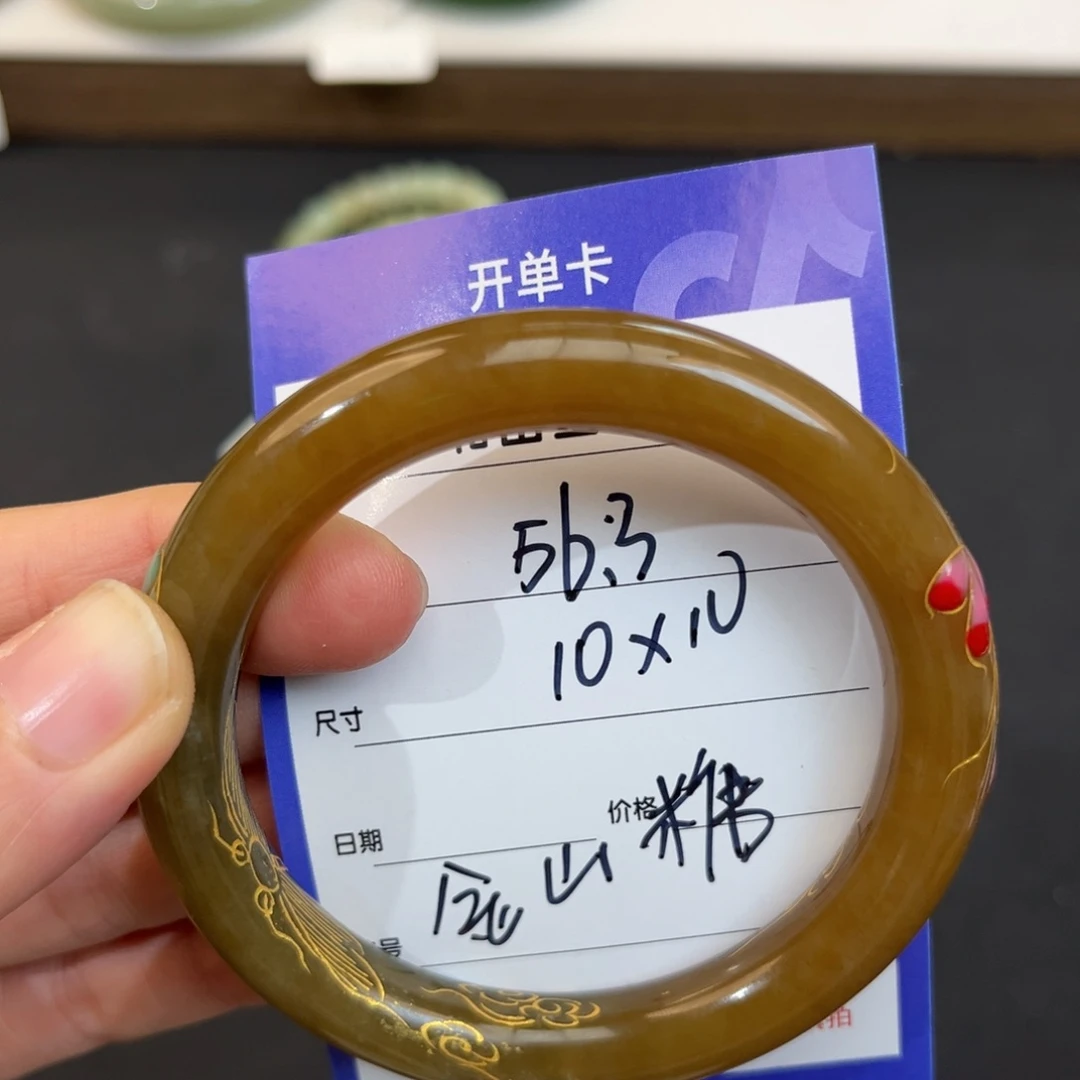 开单卡
56.3
10×10
尺寸
价格 糖
日期
金山
号
拍